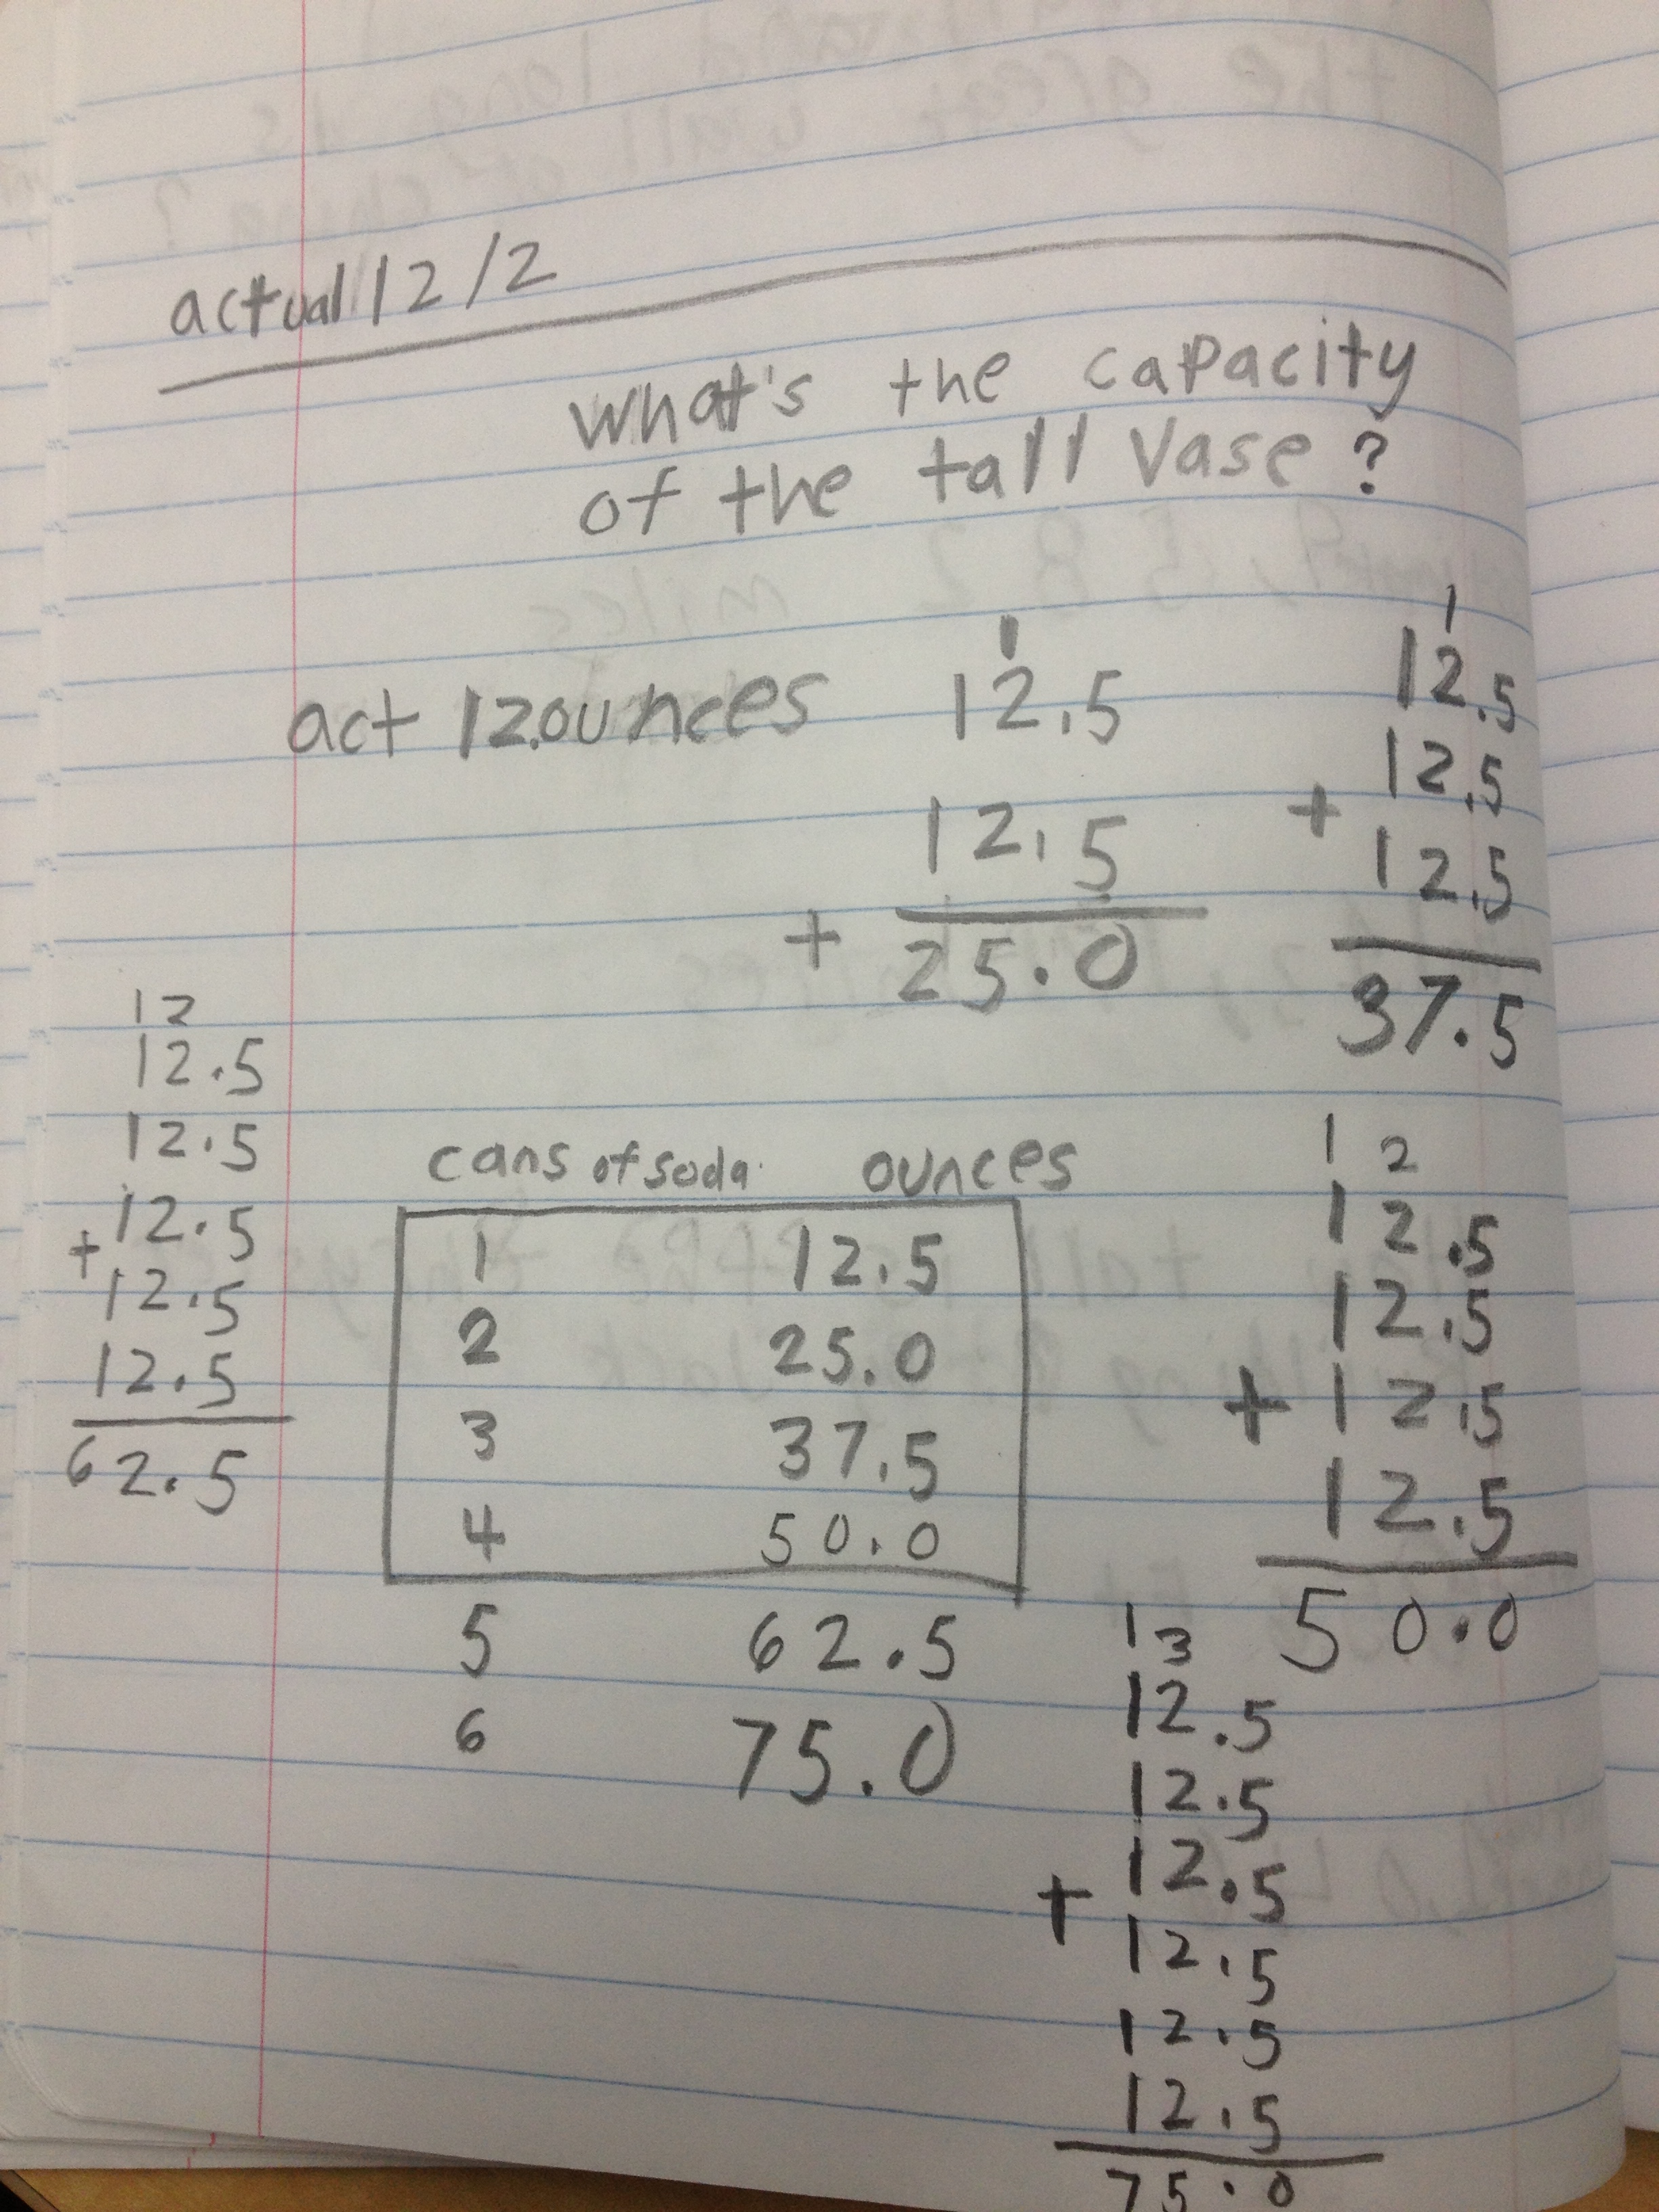 actual 12/2
What's the capacity
of the tall vase?
act 12.ounces
1
12.5
12.5
+
25.0
1
12.5
12.5
+
12.5
37.5
12
12.5
12.5
+12.5
12.5
12.5
62.5
cans of soda ounces
1 12.5
2 25.0
3 37.5
4 50.0
5 62.5
6 75.0
1 2
12.5
12.5
+12.5
12.5
50.0
1 3
12.5
12.5
+12.5
12.5
12.5
12.5
75.0